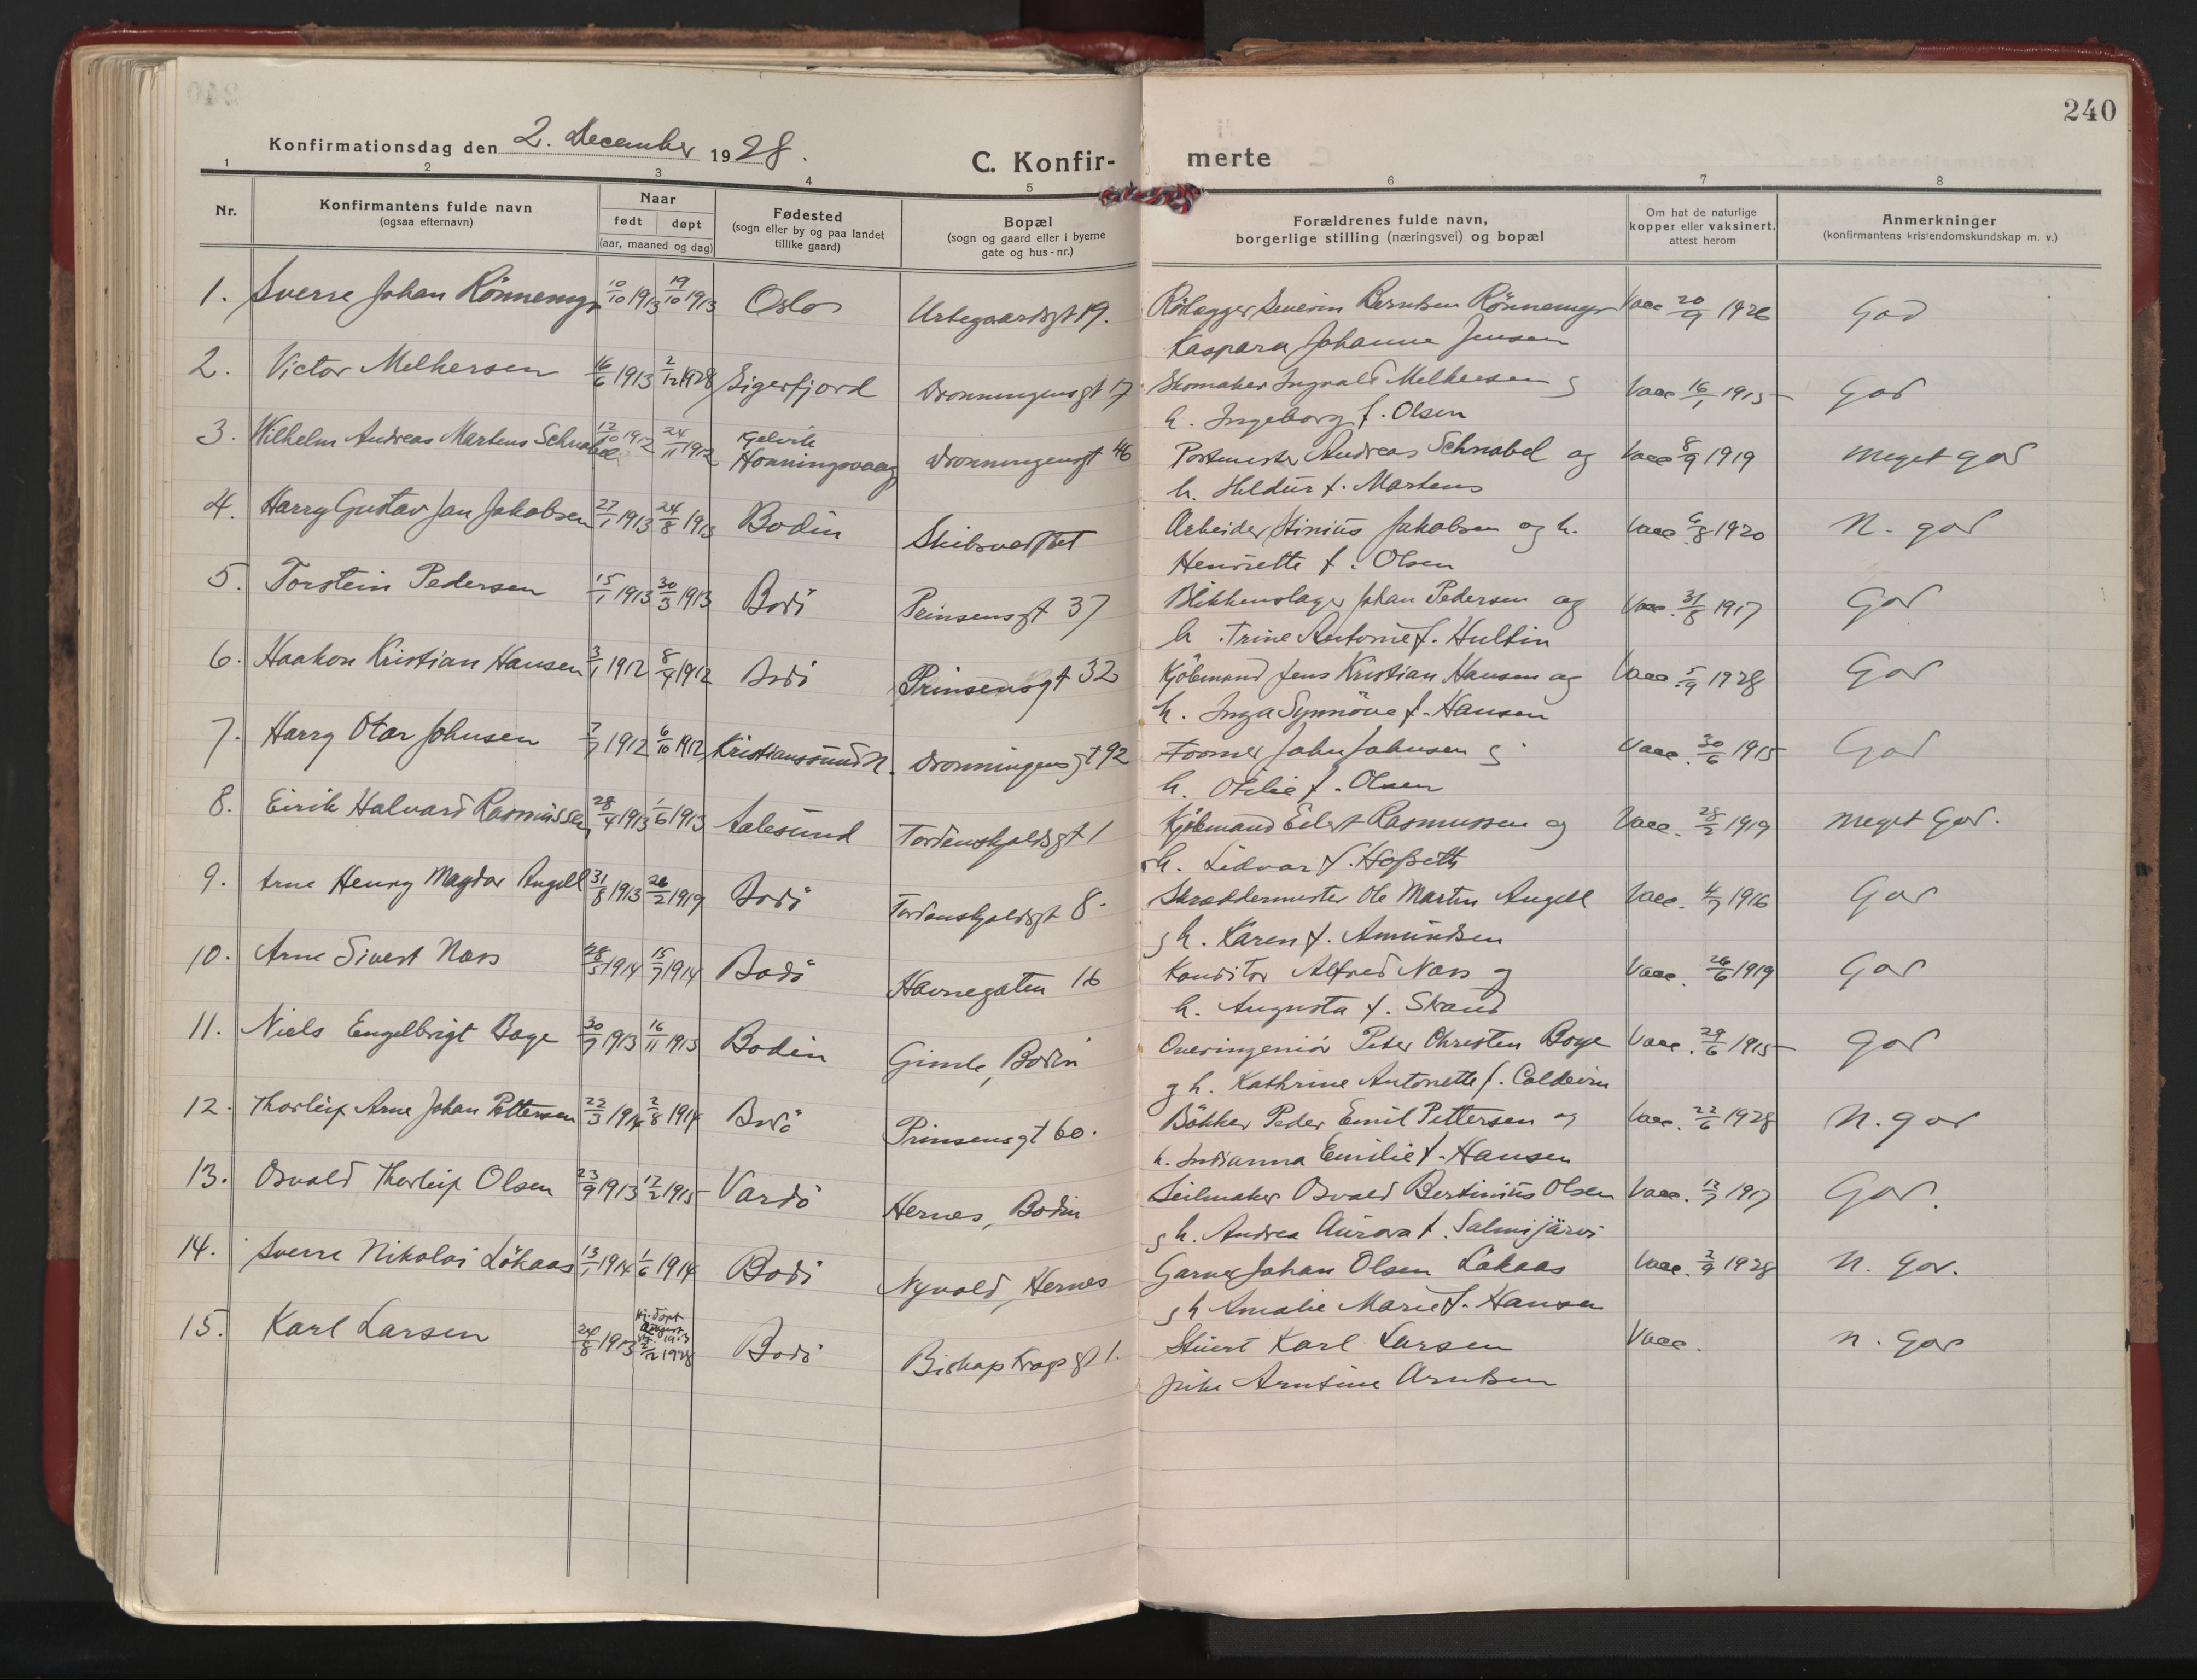 240
Konfirmationsdag den 2. December 1928.
C. Konfirmerte
1 2 3 4 5 6 7 8
Nr.
Konfirmantens fulde navn
(ogsaa efternavn)
Naar
født døpt
(aar, maaned og dag)
Fødested
(sogn eller by og paa landet
tillike gaard)
Bopæl
(sogn og gaard eller i byerne
gate og hus-nr.)
Forældrenes fulde navn,
borgerlige stilling (næringsvei) og bopæl
Om hat de naturlige
kopper eller vaksinert,
attest herom
Anmerkninger
(konfirmantens kristendomskundskap m. v.)
1. Sverre Johan Rönnemyr 10/10 1913 19/10 1913 Oslo Urtegaardsgt 19. Rörlægger Severin Berntsen Rönnemyr Vacc 20/9 1926 God
Kaspara Johanne Jensen
2. Victor Melkersen 16/6 1913 2/12 1928 Sigerfjord Dronningensgt 17 Skomaker Ingvald Melkersen g Vacc 16/1 1915 God
h. Ingeborg f. Olsen
3. Wilhelm Andreas Martens Schnabel 12/10 1912 24/11 1912 Kjelvik Honningsvaag Dronningensgt 46 Postmester Andreas Schnabel og Vacc 8/9 1919 Meget god
h. Heldur f. Martens
4. Harry Gustav Jan Jakobsen 27/1 1913 24/8 1913 Bodin Skibsverftet Arbeider Stinius Jakobsen og h. Vacc 6/8 1920 N. god
Henriette f. Olsen
5. Torstein Pedersen 15/1 1913 30/3 1913 Bodö Prinsensgt 37 Blikkenslager Johan Pedersen og Vacc. 31/8 1917 God
h. Trine Antonie f. Hultin
6. Haakon Kristian Hansen 3/1 1912 8/4 1912 Bodö Prinsensgt 32 Kjöbmand Jens Kristian Hansen og Vacc. 5/9 1928 God
h. Inga Synnöve f. Hansen
7. Harry Otar Johnsen 7/7 1912 6/10 1912 Kristianssund N. Dronningensgt 92 Former John Johnsen g Vacc. 30/6 1915 God
h. Otilie f. Olsen
8. Eirik Halvard Rasmussen 28/4 1913 1/6 1913 Aalesund Tordenskjoldsgt 1 Kjöbmand Eilert Rasmussen og Vacc. 28/2 1919 Meget God.
h. Lidvar f. Hofseth
9. Arne Henry Magdor Angell 31/8 1913 26/2 1919 Bodö Tordenskjoldsgt 8. Skræddermester Ole Martin Angell Vacc. 4/7 1916 God
g h. Karen f. Amundsen
10. Arne Sivert Næss 28/5 1914 15/7 1914 Bodö Havnegaten 16 Konditor Alfred Næss og Vacc. 26/6 1919 God
h. Augusta f. Skaud
11. Niels Engelbrigt Boye 30/7 1913 16/11 1913 Bodin Gimle, Bodin Overingeniör Peter Christen Boye Vacc. 29/6 1915 God
g h. Kathrine Antonette f. Coldevin
12. Thorleif Arne Johan Pettersen 22/3 1914 2/8 1914 Bodö Prinsensgt 60. Bökker Peder Emil Pettersen og Vacc. 22/6 1928 N. god
h. Indianna Emilie f. Hansen
13. Osvald Thorleif Olsen 23/9 1913 12/2 1915 Vardö Hernes, Bodin Seilmaker Osvald Bertinius Olsen Vacc. 13/7 1917 God.
g h. Andrea Aurora f. Salmijärvi
14. Sverre Nikolai Lökaas 13/1 1914 1/6 1914 Bodö Nyvold, Hernes Garver Johan Olsen Lökaas Vacc. 2/9 1928 N. God.
g h Amalie Marie f. Hansen
15. Karl Larsen 24/8 1913 hj. döpt August 1913 2/12 1928 Bodö Biskop Krogs gt 1. Stuert Karl Larsen Vacc. N. God
Arntine Arntsen